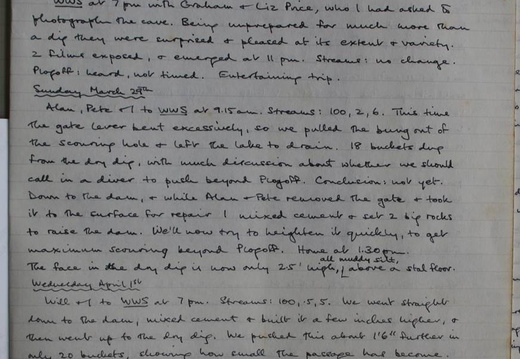 WWS at 7 pm with Graham & Liz Price, who I had asked to
photograph the cave. Being unprepared for much more than
a dig they were surprised & pleased at its extent & variety.
2 films exposed, & emerged at 11 pm. Streams: no change.
Plogoff: heard, not timed. Entertaining trip.
Sunday March 29th
Alan, Pete & I to WWS at 9.15am. Streams: 100, 2, 6. This time
the gate lever bent excessively, so we pulled the bung out of
the scouring hole & left the lake to drain. 18 buckets dug
from the dry dig, with much discussion about whether we should
call in a diver to push beyond Plogoff. Conclusion: not yet.
Down to the dam, & while Alan & Pete removed the gate & took
it to the surface for repair I mixed cement & set 2 big rocks
to raise the dam. We'll now try to heighten it quickly, to get
maximum scouring beyond Plogoff. Home at 1.30pm.
The face in the dry dig is now only 2.5' high, all muddy silt, above a stal floor.
Wednesday April 1st
Will & I to WWS at 7 pm. Streams: 100, .5, 5. We went straight
down to the dam, mixed cement & built it a few inches higher, &
then went up to the dry dig. We pushed this about 1'6" further in
only 20 buckets, showing how small the passage has become.